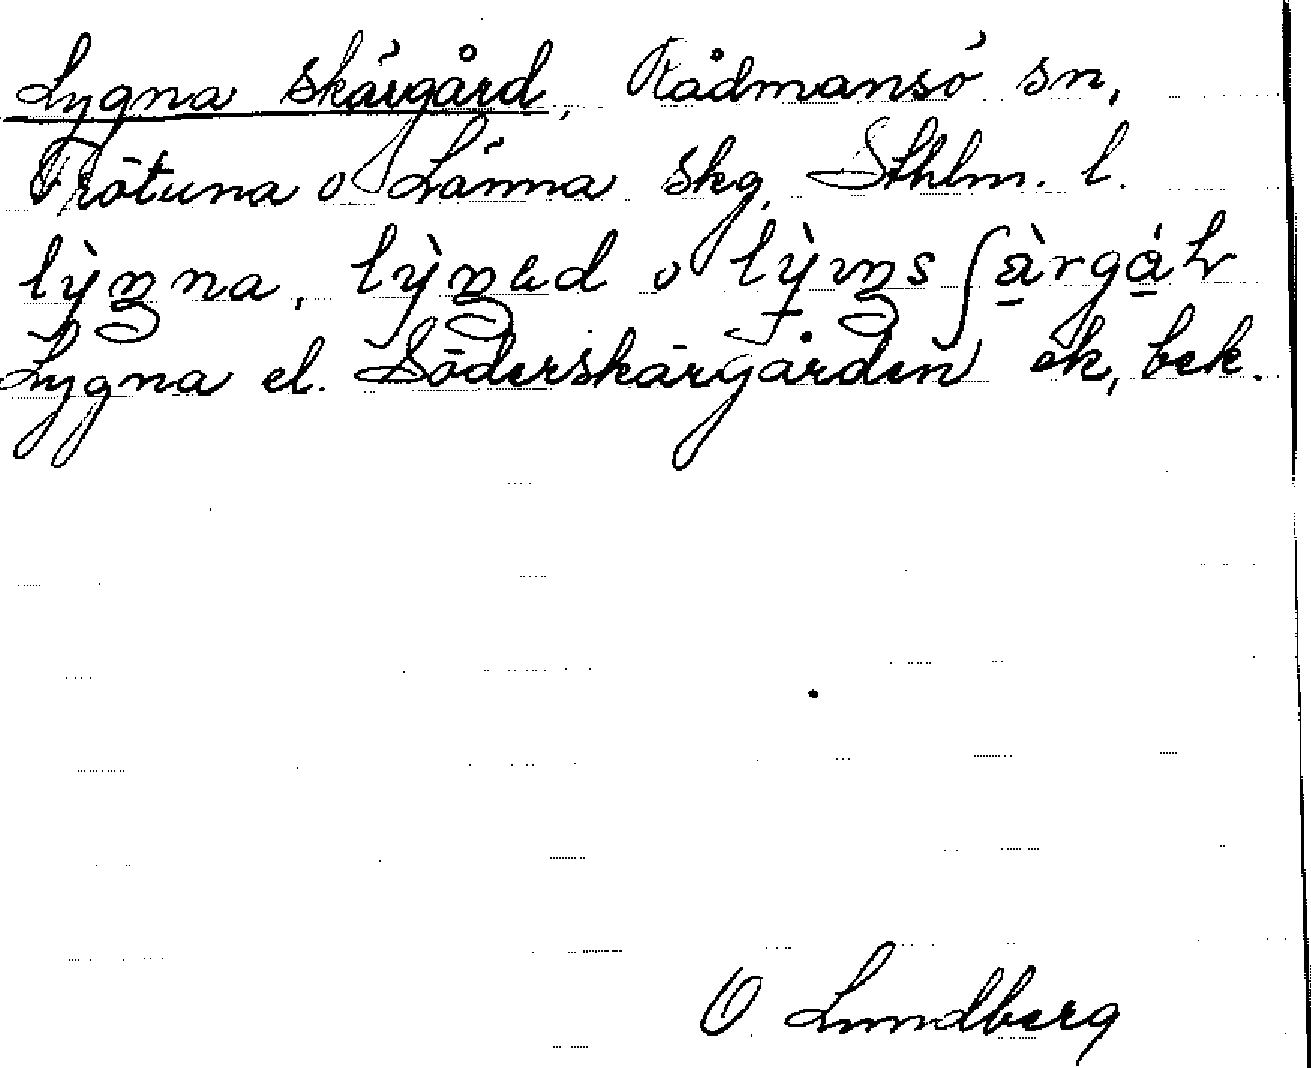 Lygna skärgård, Rådmansö sn,
Frötuna o Länna skg, Sthlm. l.
lỳŋna, lỳŋad o
Lygna el. Söderskärgården ek, bek.
O Lundberg